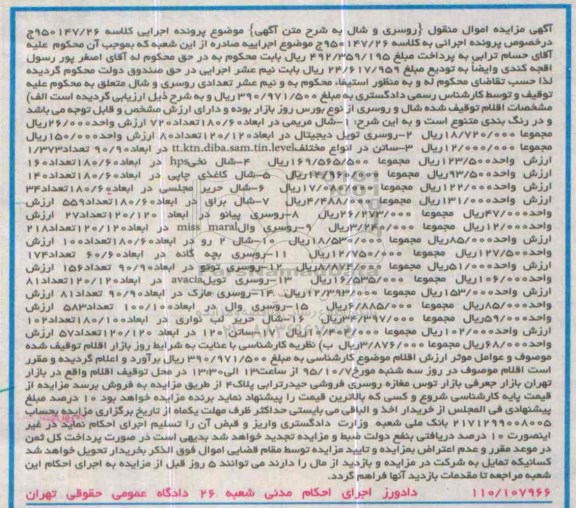 آگهی مزایده اموال منقول {روسری و شال به شرح متن آگهی} موضوع پرونده اجرایی کلاسه ۹۵۰۱۴۷/۲۶ج
درخصوص پرونده اجرائی به کلاسه ۹۵۰۱۴۷/۲۶ج موضوع اجراییه صادره از این شعبه که بموجب آن محکوم علیه
آقای حسام ترابی به پرداخت مبلغ ۴۹۲/۳۵۹/۱۹۵ ریال بابت محکوم به در حق محکوم له آقای اصغر پور رسول
اقجه کندی وایضاً به تودیع مبلغ ۲۴/۶۱۷/۹۵۹ ریال بابت نیم عشر اجرایی در حق صندوق دولت محکوم گردیده
لذا حسب تقاضای محکوم له و به منظور استیفاء محکوم به و نیم عشر تعدادی روسری و شال متعلق به محکوم علیه
توقیف و توسط کارشناس رسمی دادگستری به مبلغ ۳۹۰/۹۷۱/۵۰۰ ریال و به شرح ذیل ارزیابی گردیده است الف)
مشخصات اقلام توقیف شده شال و روسری از نوع بورس روز بازار بوده و دارای ارزش مشخص و قابل توجه می باشد
و در رنگ بندی متنوع است و به این شرح: ۱-شال مریمی در ابعاد۱۸۰/۶۰تعداد۷۲۰ ارزش واحد۲۶/۰۰۰ریال
مجموعا ۱۸/۷۲۰/۰۰۰ریال ۲-روسری تویل دیجیتال در ابعاد۱۲۰/۱۲۰تعداد۸۰ ارزش واحد۱۵۰/۰۰۰ریال
مجموعا ۱۲/۰۰۰/۰۰۰ریال ۳-ساتن در انواع مختلفtt.ktn.diba.sam.tin.level در ابعاد۹۰/۹۰ تعداد۱/۳۷۳
ارزش واحد۱۲۳/۵۰۰ریال مجموعا ۱۶۹/۵۶۵/۵۰۰ریال ۴-شال نخیhps در ابعاد۱۸۰/۶۰تعداد۱۶۰
ارزش واحد۹۳/۵۰۰ریال مجموعا ریال ۵-شال کاغذی چاپی در ابعاد۱۸۰/۶۰تعداد۱۴۰
ارزش واحد۱۲۲/۰۰۰ریال مجموعا ریال ۶-شال حریر مجلسی در ابعاد۱۸۰/۶۰تعداد۳۴
ارزش واحد۱۳۱/۰۰۰ریال مجموعا ریال ۷-شال براق در ابعاد۱۸۰/۶۰تعداد۵۵۹ ارزش
واحد۴۷/۰۰۰ریال مجموعا ۲۶/۲۷۳/۰۰۰ریال ۸-روسری پیانو در ابعاد ۱۲۰/۱۲۰تعداد۲۷ ارزش
واحد۱۲۰/۰۰۰ریال مجموعا ۳/۲۴۰/۰۰۰ریال ۹-روسری والmiss maral در ابعاد۱۲۰/۱۲۰تعداد۲۱۸
ارزش واحد۸۵/۰۰۰ریال مجموعا ۱۸/۵۳۰/۰۰۰ریال ۱۰-شال ۲ رو در ابعاد۱۸۰/۶۰تعداد۱۰۰ ارزش
واحد۱۲۷/۵۰۰ریال مجموعا ۱۲/۷۵۰/۰۰۰ریال ۱۱-روسری بچه گانه در ابعاد۶۰/۶۰ تعداد۱۷۴
ارزش واحد۵۱/۰۰۰ریال مجموعا ۸/۸۷۴/۰۰۰ریال ۱۲-روسری توتو در ابعاد۹۰/۹۰ تعداد۱۵۶ ارزش
واحد۱۰۶/۰۰۰ریال مجموعا ۱۶/۵۳۵/۰۰۰ریال ۱۳-روسری تویلavacia در ابعاد۱۲۰/۱۲۰تعداد۸۱
ارزش واحد۱۵۳/۰۰۰ریال مجموعا ۱۲/۳۹۳/۰۰۰ریال ۱۴-روسری مازک در ابعاد۹۰/۹۰ تعداد۸۱ ارزش
واحد۸۵/۰۰۰ریال مجموعا ۶/۸۸۵/۰۰۰ریال ۱۵-روسری وال در ابعاد۱۰۰/۱۰۰ تعداد۵۸۳ ارزش
واحد۵۹/۰۰۰ریال مجموعا ۳۴/۳۹۷/۰۰۰ریال ۱۶-شال حریر لب نواری در ابعاد۱۸۰/۱۰۰تعداد۱۰۲
ارزش واحد۱۰۲/۰۰۰ریال مجموعا ۱۰/۴۰۴/۰۰۰ریال ۱۷-ساتن۱۲۰ در ابعاد ۱۲۰/۱۲۰تعداد۵۷ ارزش
واحد۶۸/۰۰۰ریال مجموعا ۳/۸۷۶/۰۰۰ریال ب) نظریه کارشناسی با عنایت به شرایط روز بازار اقلام توقیف شده
موصوف و عوامل موثر ارزش اقلام موضوع کارشناسی به مبلغ ۳۹۰/۹۷۱/۵۰۰ ریال برآورد و اعلام گردیده و مقرر
است اقلام موصوف در روز سه شنبه مورخ۹۵/۱۰/۷ از ساعت۱۳ الی۱۳:۳۰ در محل توقیف اقلام واقع در بازار
تهران بازار جعرفی بازار توس مغازه روسری فروشی حیدرترابی پلاک۴ از طریق مزایده به فروش برسد مزایده از
قیمت پایه کارشناسی شروع و کسی که بالاترین قیمت را پیشنهاد نماید برنده مزایده خواهد بود ۱۰ درصد مبلغ
پیشنهادی فی المجلس از خریدار اخذ و الباقی می بایستی حداکثر ظرف مهلت یکماه از تاریخ برگزاری مزایده بحساب
۲۱۷۱۲۹۹۰۰۸۰۰۵ بانک ملی شعبه وزارت دادگستری واریز و قبض آن را تسلیم اجرای احکام نماید در غیر
اینصورت ۱۰ درصد دریافتی بنفع دولت ضبط و مزایده تجدید خواهد شد بدیهی است در صورت پرداخت کل ثمن
در موعد مقرر و عدم اعتراض بمزایده و تایید مزایده توسط مقام قضایی اموال فوق الذکر بخریدار تحویل خواهد شد
کسانیکه تمایل به شرکت در مزایده و بازدید از مال را دارند می توانند ۵ روز قبل از مزایده به اجرای احکام این
شعبه مراجعه تا مقدمات بازدید آنها فراهم گردد.
۱۱۰/۱۰۷۹۶۶ دادورز اجرای احکام مدنی شعبه ۲۶ دادگاه عمومی حقوقی تهران